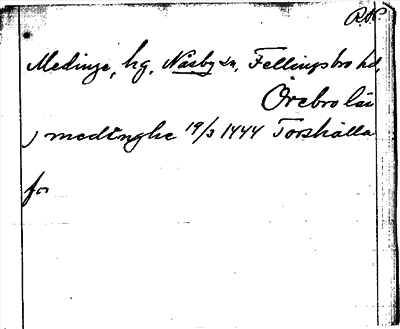 R.A.
Medinge, hg, Näsby sn, Fellingsbro hd,
Örebro län
) medinghe 19/3 1444 Torshälla
for